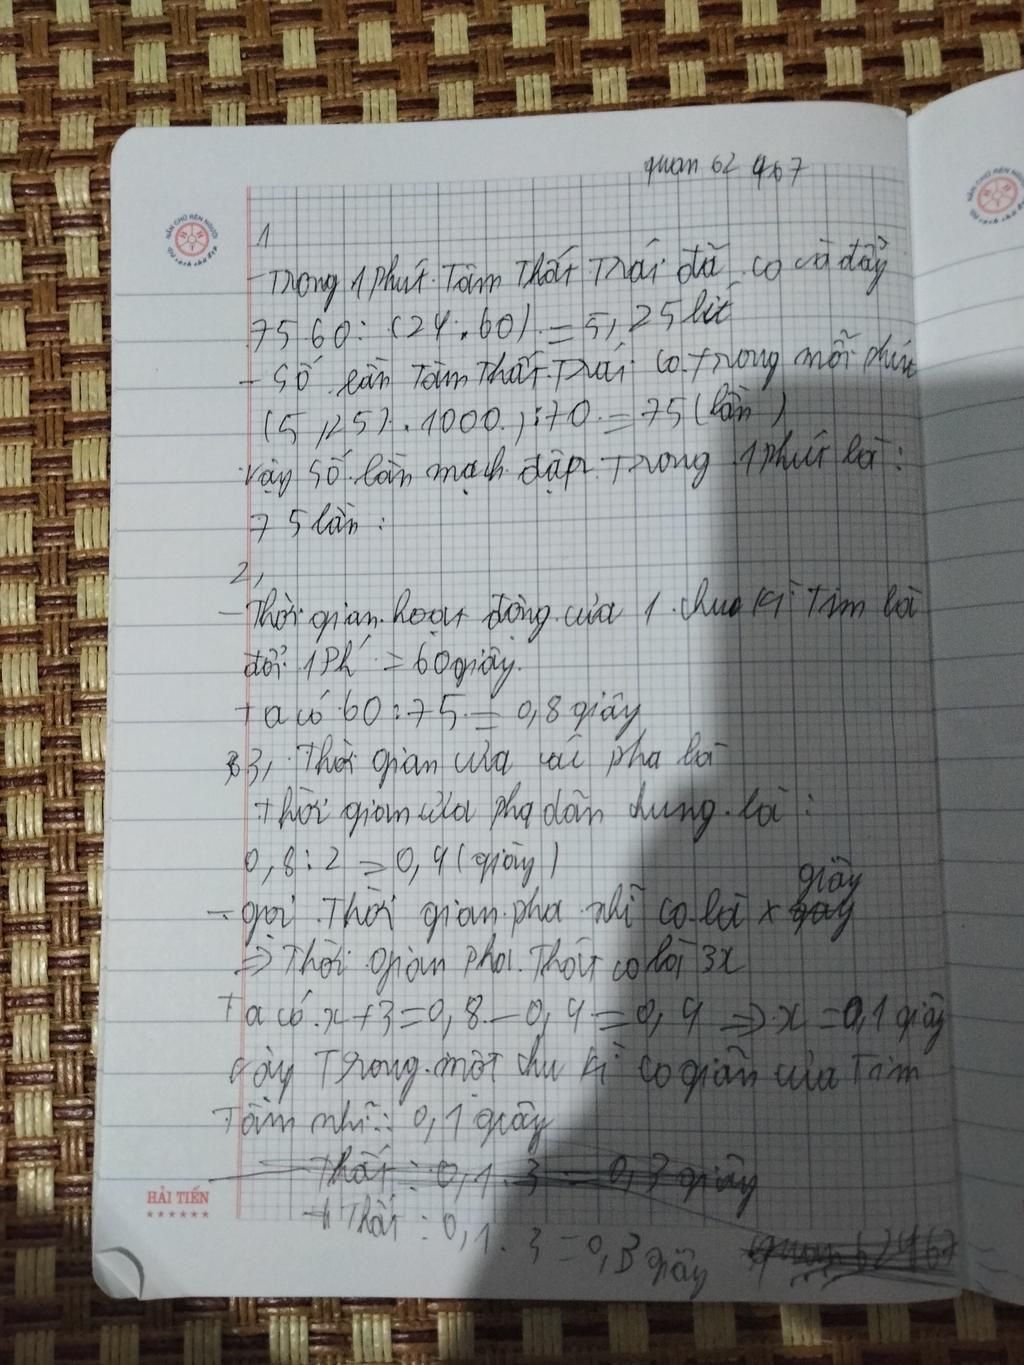 quan 62 467
1
- Trong 1 phút Tâm Thất Trái đã co và đẩy
7560 : (24 . 60) = 5,25 lít
- Số lần Tâm Thất Trái co Trong mỗi phút
(5,25) . 1000 ) : 70 = 75 (lần)
vậy Số lần mạch đập Trong 1 phút là :
75 lần :
2,
- Thời gian hoạt động của 1 chu kì Tim là
đổi 1 Ph = 60 giây.
Ta có 60 : 75 = 0,8 giây
3, Thời gian của các pha là
Thời gian của pha dãn chung là :
0,8 : 2 = 0,4 (giây)
- gọi Thời gian pha nhĩ co là x giây
=> Thời gian pha Thất co là 3x
Ta có x + 3 = 0,8 - 0,4 = 0,4 => x = 0,1 giây
vậy Trong một chu kì co giãn của Tim
Tâm nhĩ : 0,1 giây
Thất : 0,1 . 3 = 0,3 giây
+ Thất : 0,1 . 3 = 0,3 giây
quan 62467
HẢI TIẾN